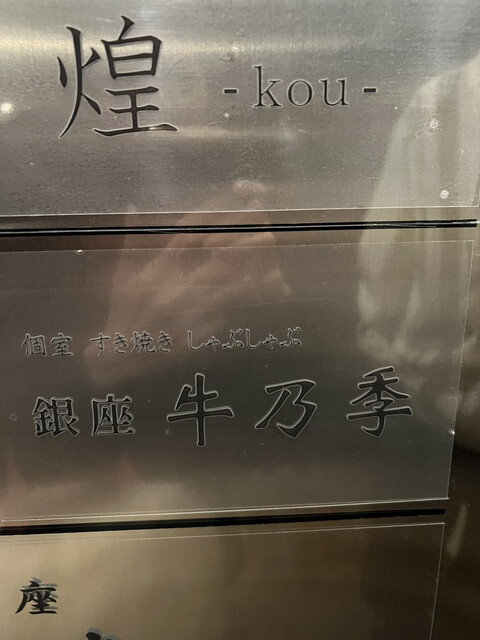 煌 -kou-
個室 すき焼き しゃぶしゃぶ
銀座 牛乃季
座